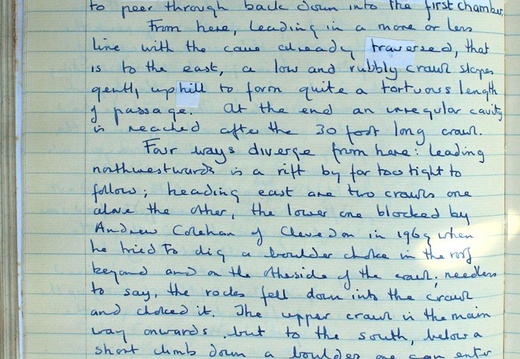 to peer through back down into the first chamber.
From here, leading in a more or less
line with the cave already traversed, that
is to the east, a low and rubbly crawl slopes
gently uphill to form quite a tortuous length
of passage. At the end an irregular cavity
is reached after the 30 foot long crawl.
Four ways diverge from here: leading
northwestwards is a rift by far too tight to
follow; heading east are two crawls one
above the other, the lower one blocked by
Andrew Colehan of Clevedon in 1969 when
he tried to dig a boulder choke in the roof
beyond and on the otherside of the crawl; needless
to say, the rocks fell down into the crawl
and choked it. The upper crawl is the main
way onwards. but to the south, below a
short climb down a boulder one can enter